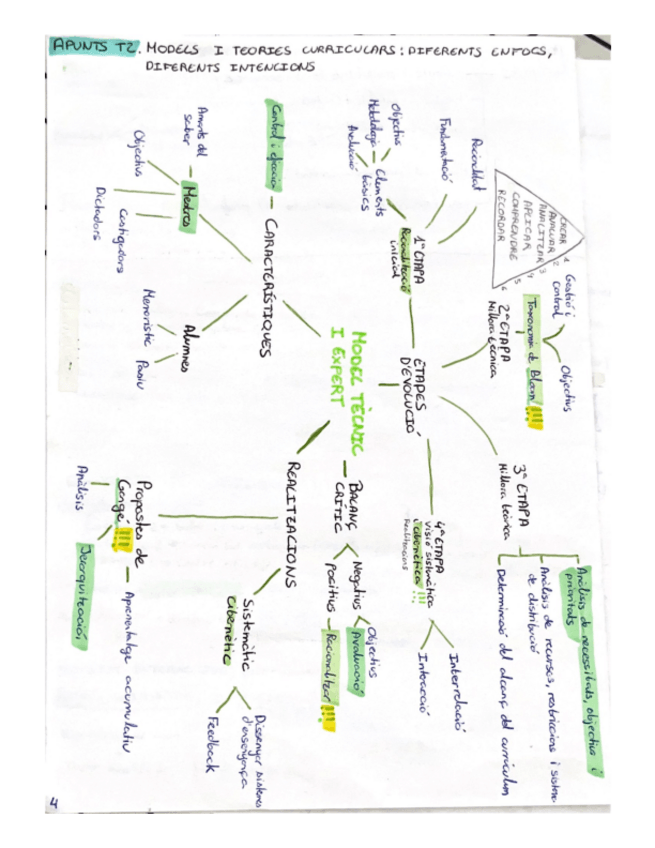 APUNTS T2. MODELS I TEORIES CURRICULARS: DIFERENTS ENFOCS,
DIFERENTS INTENCIONS
MODEL TÈCNIC
I EXPERT
CARACTERÍSTIQUES
Control i eficàcia
Mestres
Amants del
saber
Objectius
Dictadors
Castigadors
Alumnes
Memorístic
Passiu
ETAPES
D'EVOLUCIÓ
1ª ETAPA
Racionalització
inicial
Racionalitat
Fonamentació
Elements
bàsics
Objectius
Metodologia
Avaluació
2ª ETAPA
Millora tècnica
Taxonomia de Bloom !!!
Gestió i
control
Objectius
CREAR 1
AVALUAR 2
ANALITZAR 3
APLICAR 4
COMPRENDRE 5
RECORDAR 6
3ª ETAPA
Millora teòrica
Anàlisis de necessitats, objectius i
prioritats
Anàlisis de recursos, restriccions i sistema
de distribució
Determinació del alcanç del currículum
4ª ETAPA
Visió sistemàtica
cibernètica !!!
Interrelació
Interacció
BALANÇ
CRÍTIC
Negatius
Objectius
Avaluació
positius
Racionalitzar !!!
REALITZACIONS
Sistemàtic
cibernètic
Dissenyar sistemes
d'ensenyança
Feedback
Propostes de
Gangé !!!
Anàlisis
Jerarquització
Aprenentatge acumulatiu
4